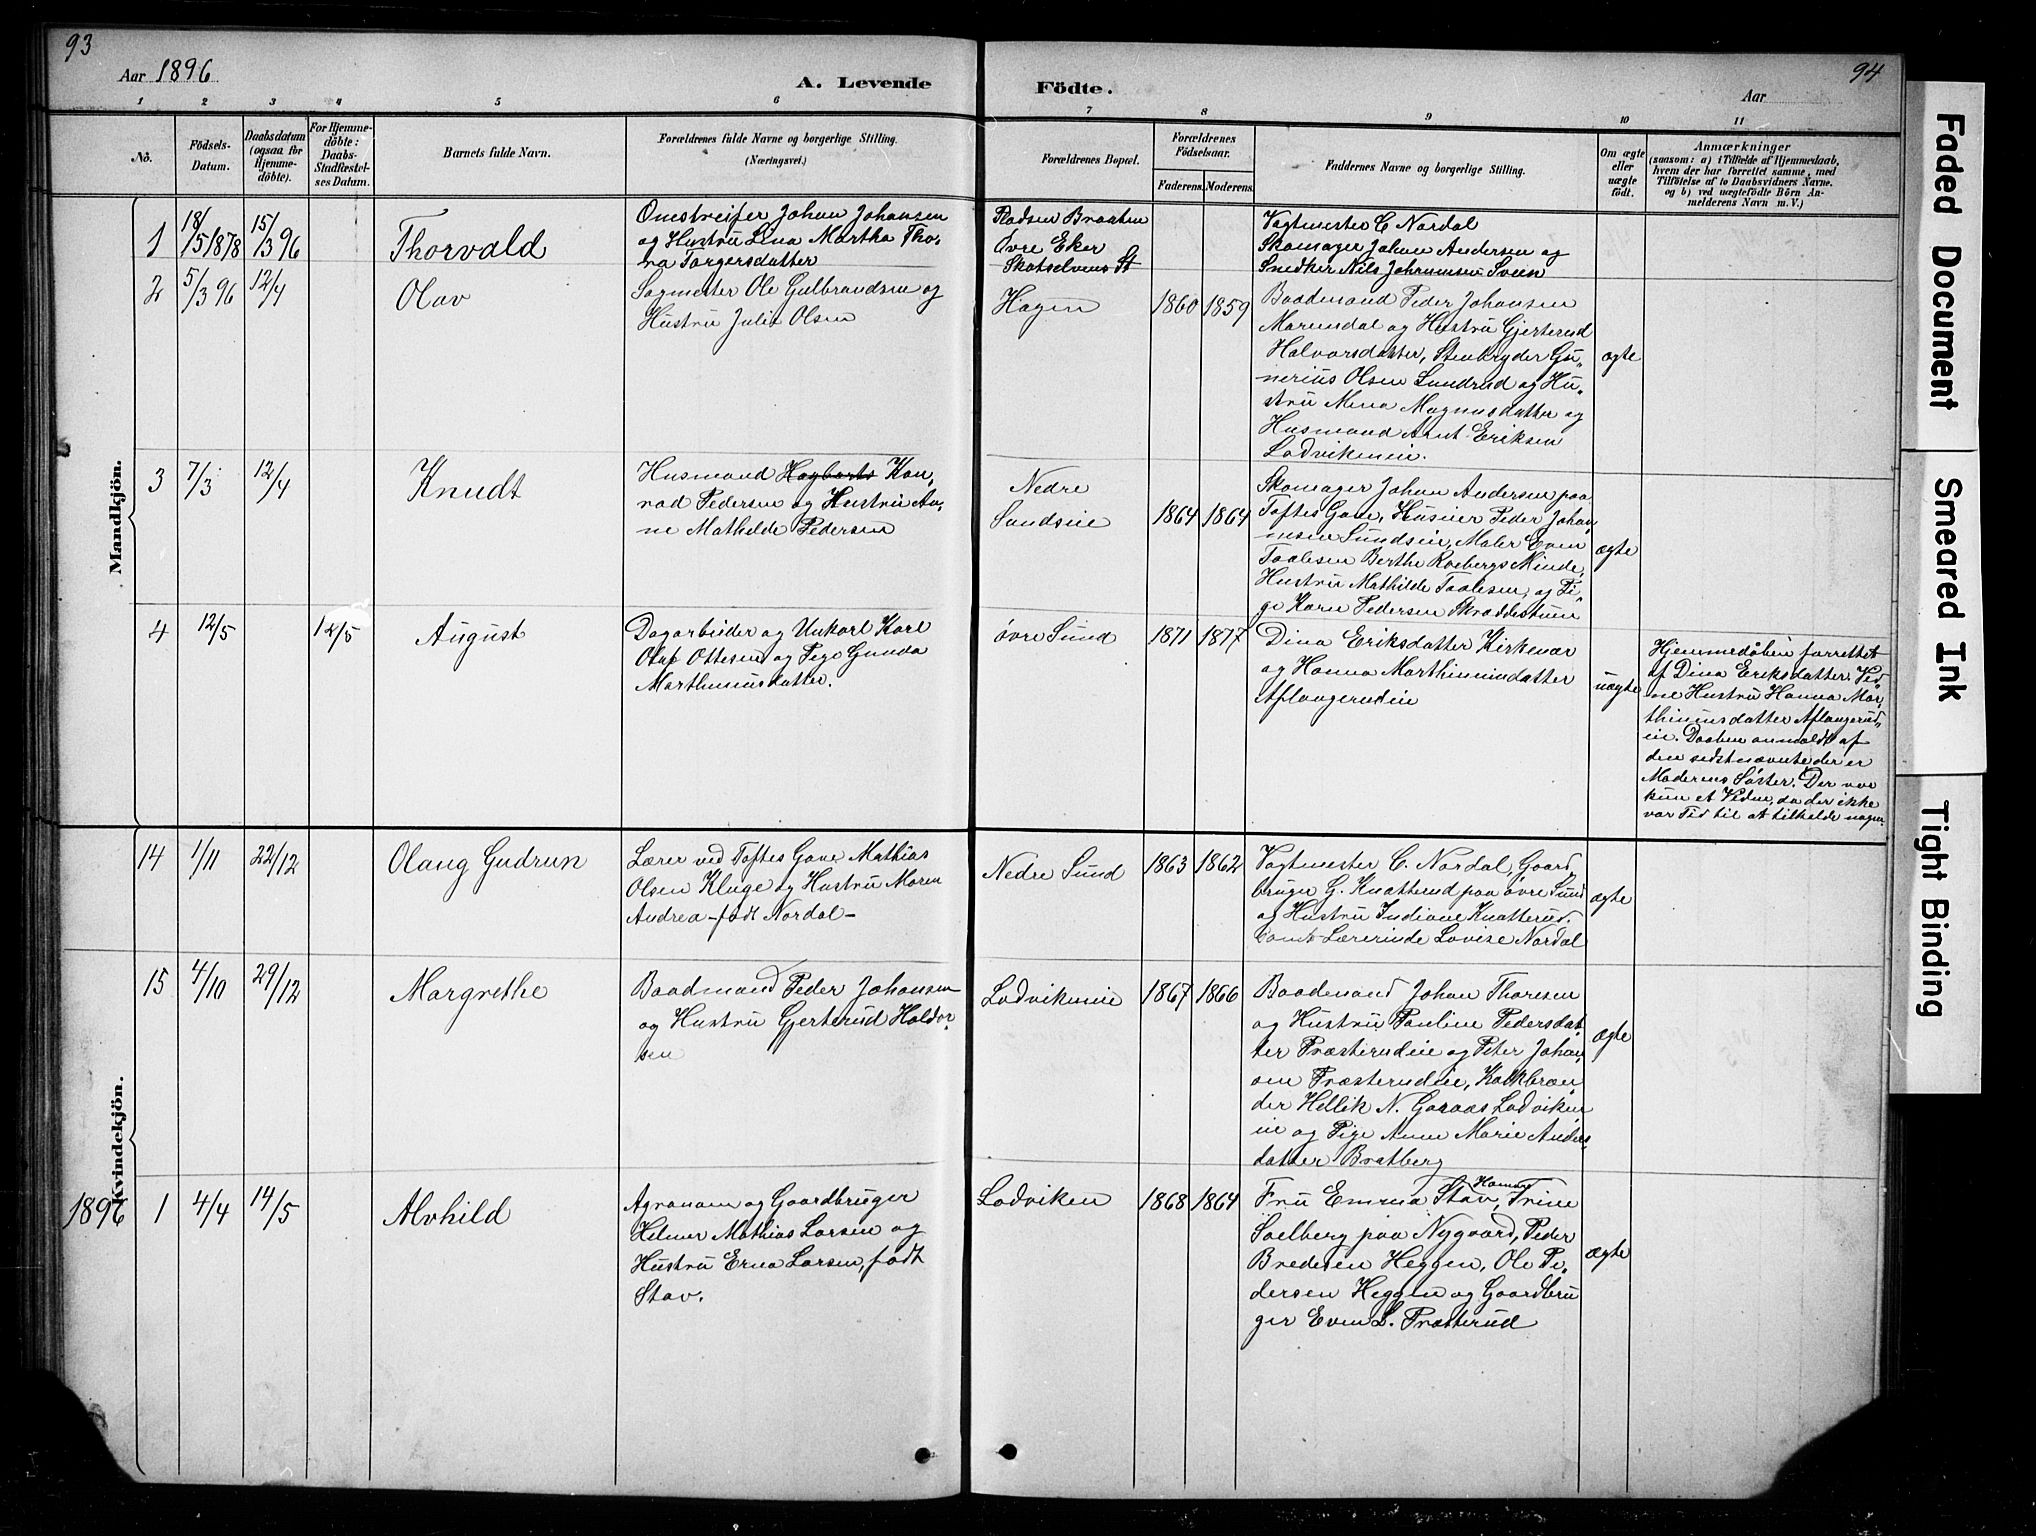 93
Aar 1896
A. Levende
Födte.
Aar
94
1
2
3
4
5
6
7
8
9
10
11
No.
Födsels-
Datum.
Daabsdatum
(ogsaa for
Hjemme-
döbte).
For Hjemme-
döbte:
Daabs-
Stadfæstel-
ses Datum.
Barnets fulde Navn.
Forældrenes fulde Navne og borgerlige Stilling.
(Næringsvei.)
Forældrenes Bopæl.
Forældrenes
Födselsaar.
Faderens.
Moderens.
Faddernes Navne og borgerlige Stilling.
Om ægte
eller
uægte
födt.
Anmærkninger
(saasom: a) i Tilfælde af Hjemmedaab,
hvem der har forrettet samme, med
Tilföielse af to Daabsvidners Navne.
og b) ved uægtefödte Börn An-
melderens Navn m. V.)
Mandkjön.
1
18/5 1878
15/3 96
Thorvald
Omstreifer Johan Johansen
og Hustru Lina Martha Tho-
ra Torgersdatter
Pladsen Braaten
Øvre Eker
Skotselvens St
Vagtmester C Nordal
Skomager Johan Andersen og
Snedker Nils Johannesen Sveen
2
5/3 96
12/4
Olav
Sagmester Ole Gulbrandsen og
Hustru Julie Olsen
Hagen
1860
1859
Baadmand Peder Johansen
Marendal og Hustru Gjerterud
Halvorsdatter, Stenbryder Gu„
nerius Olsen Lundrud og Hu„
stru Mina Magnusdatter og
Husmand Arnt Eriksen
Lodvikeneie.
ægte
3
7/3
12/4
Knudt
Husmand Hagbarts Kon„
rad Pedersen og Hustru An„
ne Mathilde Pedersen
Nedre
Sundseie
1864
1864
Skomager Johan Andersen paa
Toftes Gave, Huseier Peder Johan
nesen Sundseie, Maler Even
Taalesen Berthe Roebergs Minde,
Hustru Mathilde Taalesen, og Pi„
ge Karen Pedersen Skræddestuen
ægte
4
12/5
12/5
August
Dagarbeider og Unkarl Karl
Oluf Ottesen og Pige Gunda
Marthiniusdatter.
øvre Sund
1871
1877
Dina Eriksdatter Kirkenær
og Hanna Marthiniusdatter
Aflangerudeie
uægte
Hjemmedåben forrettet
af Dina Eriksdatter. Vid
ne Hustru Hanna Mar„
thiniusdatter Aflangerud„
eie. Daaben anmeldt af
den sidstnævnte der er
Moderens Søster. Der var
kun et Vidne, da der ikke
var Tid til at tilkalde nogen.
Kvindekjön.
14
1/11
22/12
Olaug Gudrun
Lærer ved Toftes Gave Mathias
Olsen Kluge og Hustru Maren
Andrea – født Nordal –
Nedre Sund
1863
1862
Vagtmester C. Nordal, Gaard
bruger G. Knatterud paa øvre Sund
og Hustru Indiane Knatterud,
samt Lærerinde Lovise Nordal
ægte
15
4/10
29/12
Margrethe
Baadmand Peder Johansen
og Hustru Gjerterud Haldor
sen
Lodvikeneie
1867
1866
Baadmand Johan Thoresen
og Hustru Pauline Pedersdat
ter Præsterudeie og Peter Johan„
sen Præsterudeie, Kalkbræn
der Hellik N. Garaas Lodviken
eie og Pige Anne Marie Anders
datter Bratberg
ægte
1896
1
4/4
14/5
Alvhild
Agronom og Gaardbruger
Helmer Mathias Larsen og
Hustru Erna Larsen, født
Stav.
Lodviken
1868
1864
Fru Emma Stav, Hanna Trine
Solberg paa Nygaard, Peder
Bredesen Heggen, Ole Pe„
dersen Heggen og Gaardbru
ger Even L. Præsterud
ægte
Faded Document
Smeared Ink
Tight Binding